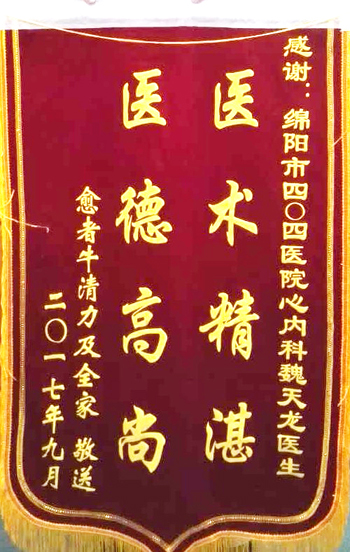 感谢：绵阳市四〇四医院心内科魏天龙医生
医术精湛
医德高尚
愈者牛清力及全家 敬送
二〇一七年九月